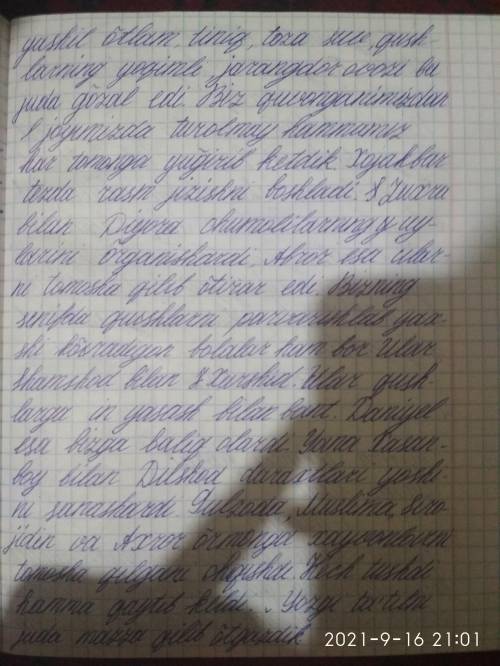 yashil o'tlam, tiniq, toza suv, qush-
larning yoqimli jarangdor ovozi bu
juda go'zal edi. Biz quvonganimizdan
joyimizda turolmay hammamiz
har tomonga yugirib ketdik. Xojakbar
tezda rasm jizishni boshladi. Zuxra
bilan Diyora chumolilarning uy-
larini o'rganishardi. Abror esa ular-
ni tomosha qilib o'tirar edi. Bizning
sinifda qushlarni parvarishlab yax-
shi ko'radigon bolalar ham bor. Ular
Shamshod bilan Xurshid. Ular qush-
larga in yasash bilan band. Daniyel
esa bizga baliq olardi. Yana Xasan-
boy bilan Dilshod daraxtlari yoshi-
ni sanashardi. Gulzoda, Muslima, Siro-
jidin va Axror o'rmonga xayvonlarni
tomosha qilgani chiqishdi. Kech tushdi
hamma qaytib keldi. Yozgi ta'tilni
juda mazza qilib o'tgazdik
2021-9-16 21:01